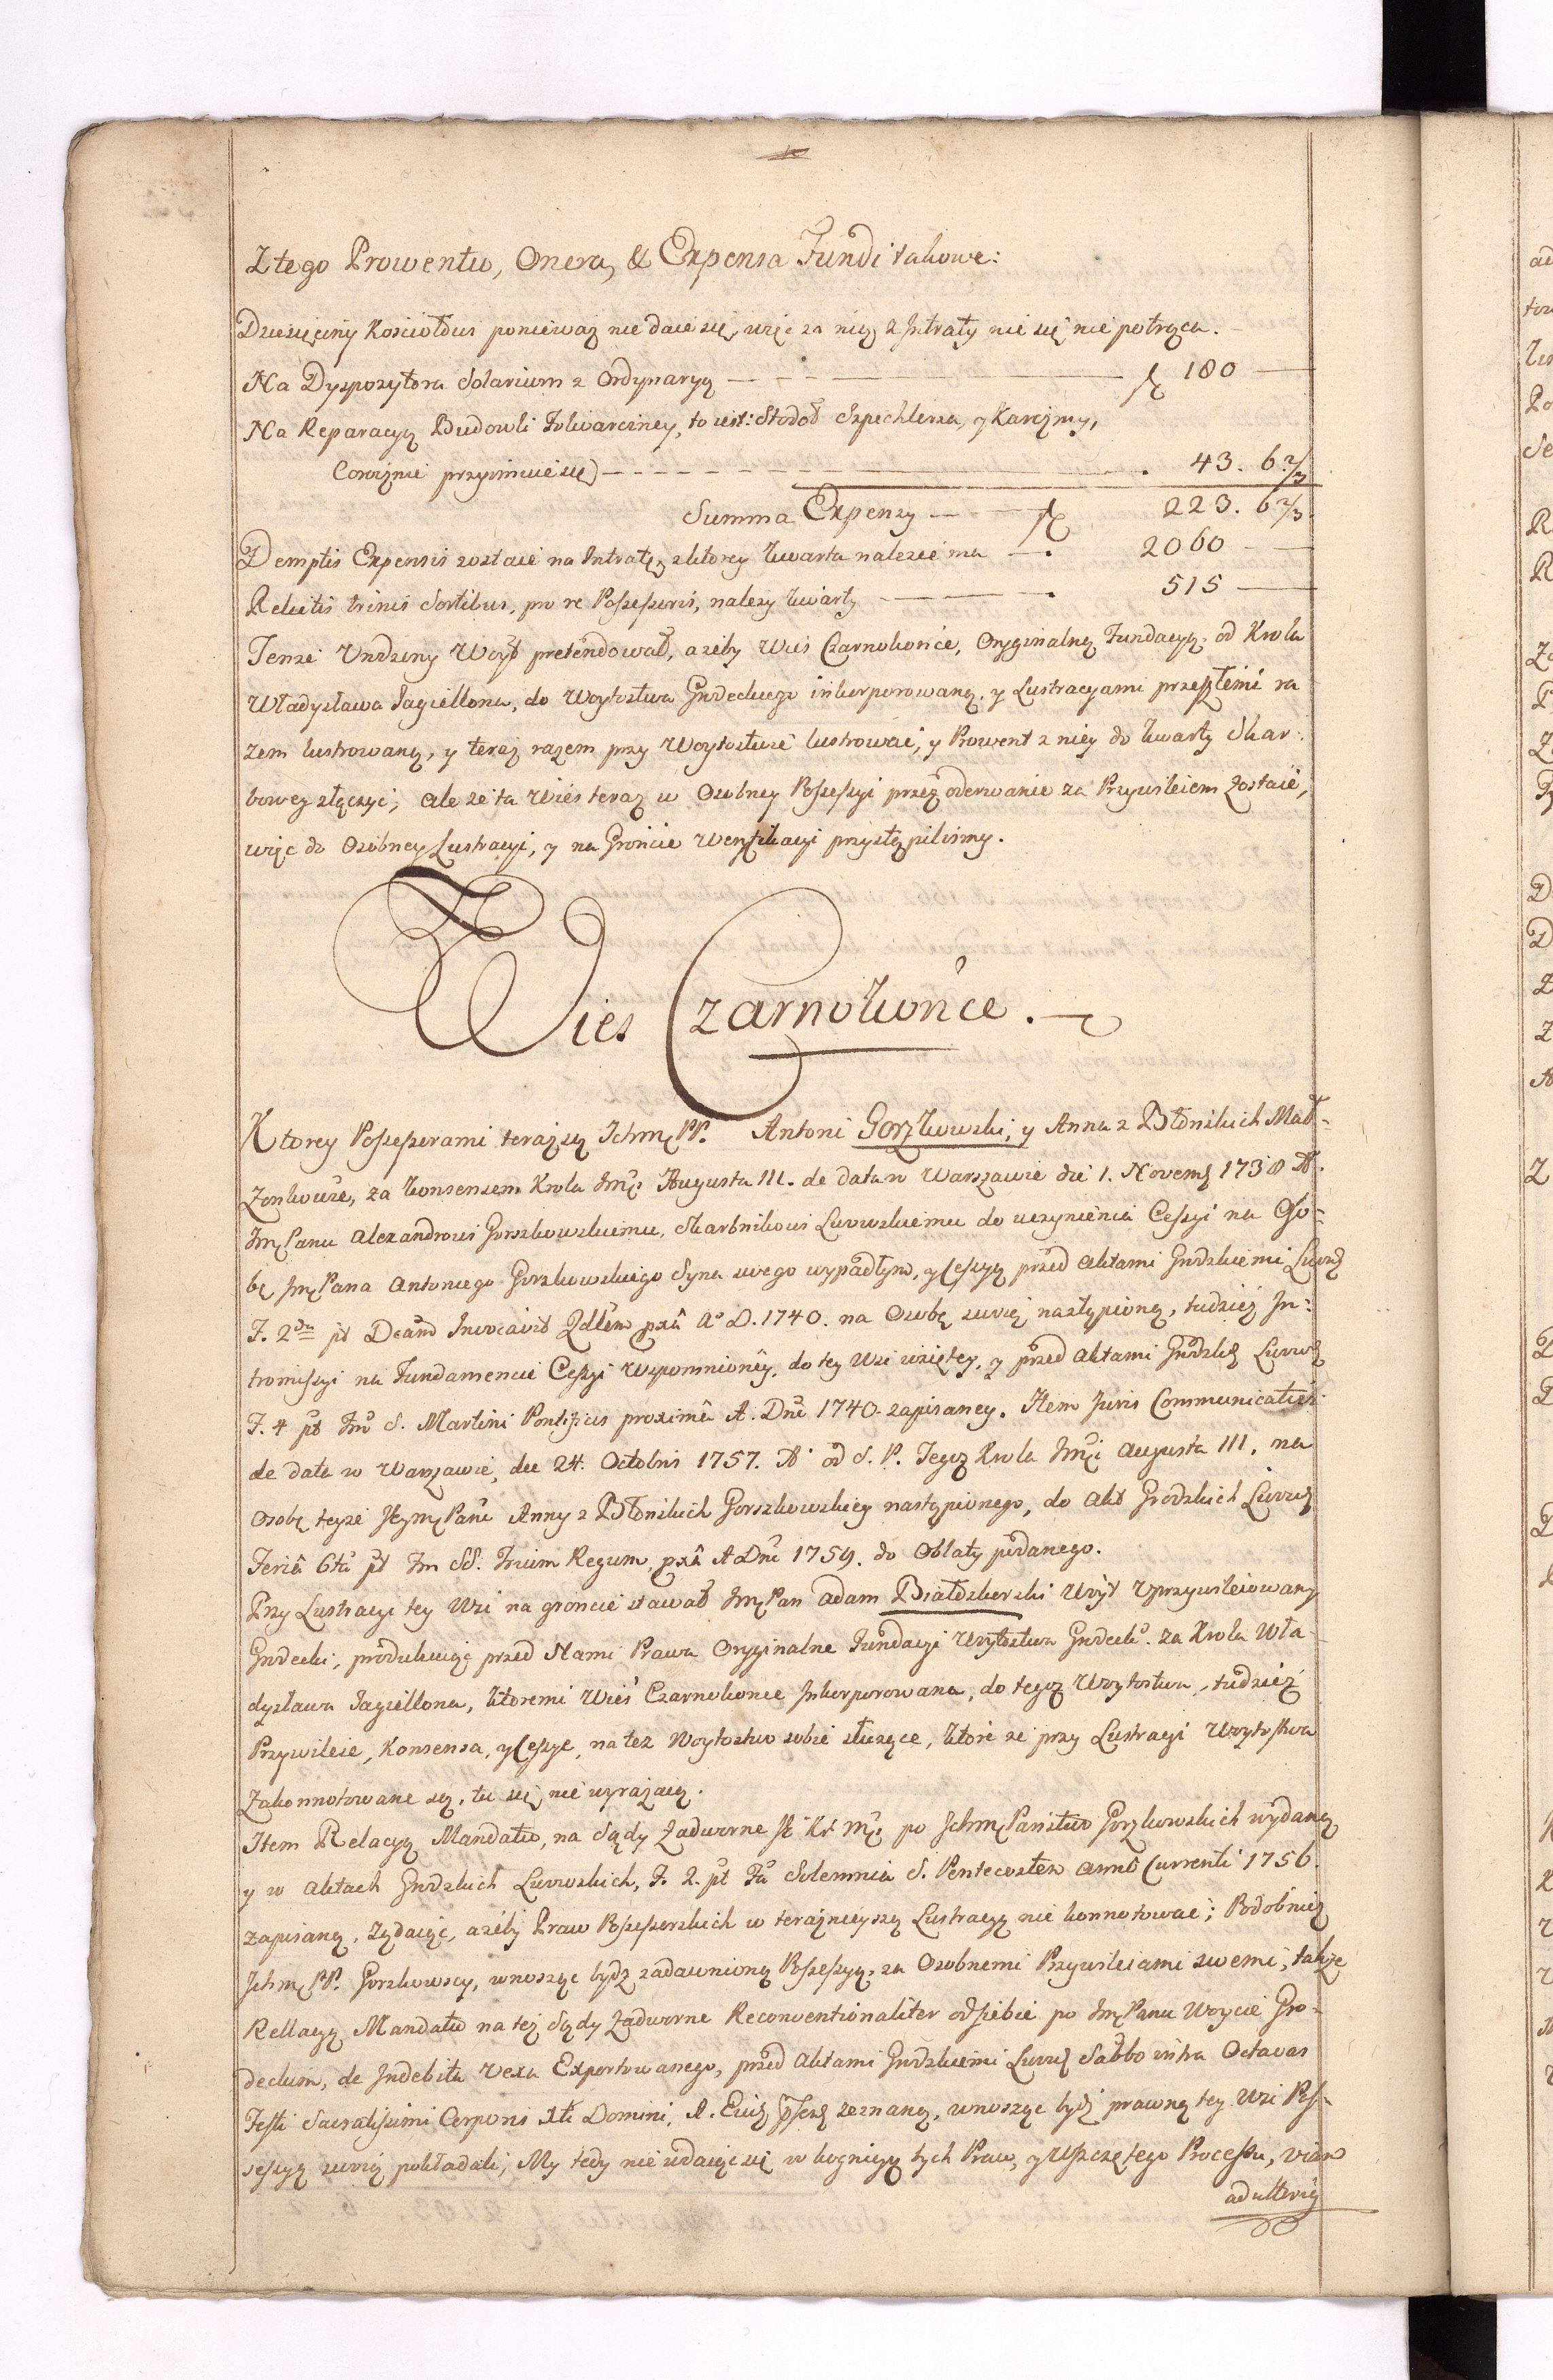 Z tego Prowentu, Onera, & Expensa Fundi takowe:
Dziesięciny Kosciołowi ponieważ nie daie się, więc za nię z Intraty nic się nie potrąca.
Na Dyspozytora Solarium z Ordynaryą 180
Na Reparacyą Budowli Folwarczney, to iest: Stodoł Szpichlerza, y Karczmy,
Corocznie przyimuie się 43. 6 2/3
Summa Expensy 223. 6 2/3.
Demptis Expensis zostaie na Intratę, z ktorey kwarta należeć ma 2060
Relictis trinis Sortibus, pro re Possessoris, należy kwarty 515
Tenże Urodzony Woyt pretendował, ażeby Wieś Czarnokońce, Oryginalną Fundacyą, od Krola
Władysława Jagiellona, do Woytostwa Grodeckiego inkorporowaną, y Lustracyami przeszłemi ra
zem lustrowaną, y teraz razem przy Woytostwie lustrować, y Prowent z niey do kwarty Skar:
bowey złączyć; ale że ta Wieś teraz w Osobney Possessyi przez oderwanie za Przywileiem zostaie,
więc do Osobney Lustracyi, y na Gruncie Weryfikacyi przystąpiliśmy.
Wies Czarnokońce.
Ktorey Possessorami teraz są Ichmć PP. Antoni Gorzkowski, y Anna z Błońskich Mał-
żonkowie, za konsensem Krola Jmći Augusta III. de data w Warszawie die 1. Novemb 1738 A.
Jmć Panu Alexandrowi Gorszkowskiemu, Skarbnikowi Lwowskiemu do uczynienia Cessyi na Oso-
bę Jmć Pana Antoniego Gorszkowskiego Syna swego wypadłym, y Cessyą przed Aktami Grodzkiemi Lwow
F. 2da pt Dcam Invocavit Qdlem pxa Ao D. 1740. na Osobę swoią nastąpioną, tudzież In:
tromissyi na Fundamencie Cessyi wspomnioney, do tey Wsi wziętey, y przed Aktami Grodzk Lwow
F. 4 pt Fm S. Martini Pontificis proxime A. Dni 1740 zapisaney. Item Juris Communicativi
de data w Warszawie, die 24. Octobris 1757. A od S. P. Tegoż Krola Jmći Augusta III. na
osobę teyże Jeymć Pani Anny z Błońskich Gorszkowskiey nastąpionego, do Akt Grodzkich Lwow
Feria 6ta pt Fm SS. Trium Regum, pxa A Dni 1759. do Oblaty podanego.
Przy Lustracyi tey Wsi na gruncie stawał Jmć Pan Adam Białoskurski Woyt Uprzywileiowany
Grodecki, produkuiąc przed Nami Prawa Oryginalne Fundacyi Woytostwa Grodeck. za Krola Wła-
dysława Jagiellona, ktoremi Wieś Czarnokonce Inkorporowana, do tegoż Woytostwa, tudzież
Przywileie, Konsensa, y Cessye, na też Woytostwo sobie służące, ktore że przy Lustracyi Woytostwa
Zakonnotowane są, tu się nie wyrażaią.
Item Relacyą Mandatu, na Sądy Zadworne JKMć po Ichmć Państwo Gorzkowskich wydaną
y w Aktach Grodzkich Lwowskich, F. 2. pt Fa Solemnia S. Pentecostes anno Currenti 1756.
zapisaną, żądaiąc, ażeby Praw Possessorskich w teraźnieyszą Lustracyą nie konnotować; Podobnież
Ichmć PP. Gorzkowscy, wnosząc bydź zadawnioną Possessyą, za Osobnemi Przywileiami swemi, także
Rellacyą Mandatu na też Sądy Zadworne Reconventionaliter od siebie po Jmć Panu Woycie Gro-
deckim, de Indebita vexa Exportowanego, przed Aktami Grodzkiemi Lwow Sabbo intra Octavas
Festi Sacratissimi Corporis Xti Domini, A. zeznaną, wnosząc bydź prawną tey Wsi Pos-
sessyą swoią pokładali; My tedy nie wdaiąc się w kognicyą tych Praw, y tego Processu, viam
ad ulterio